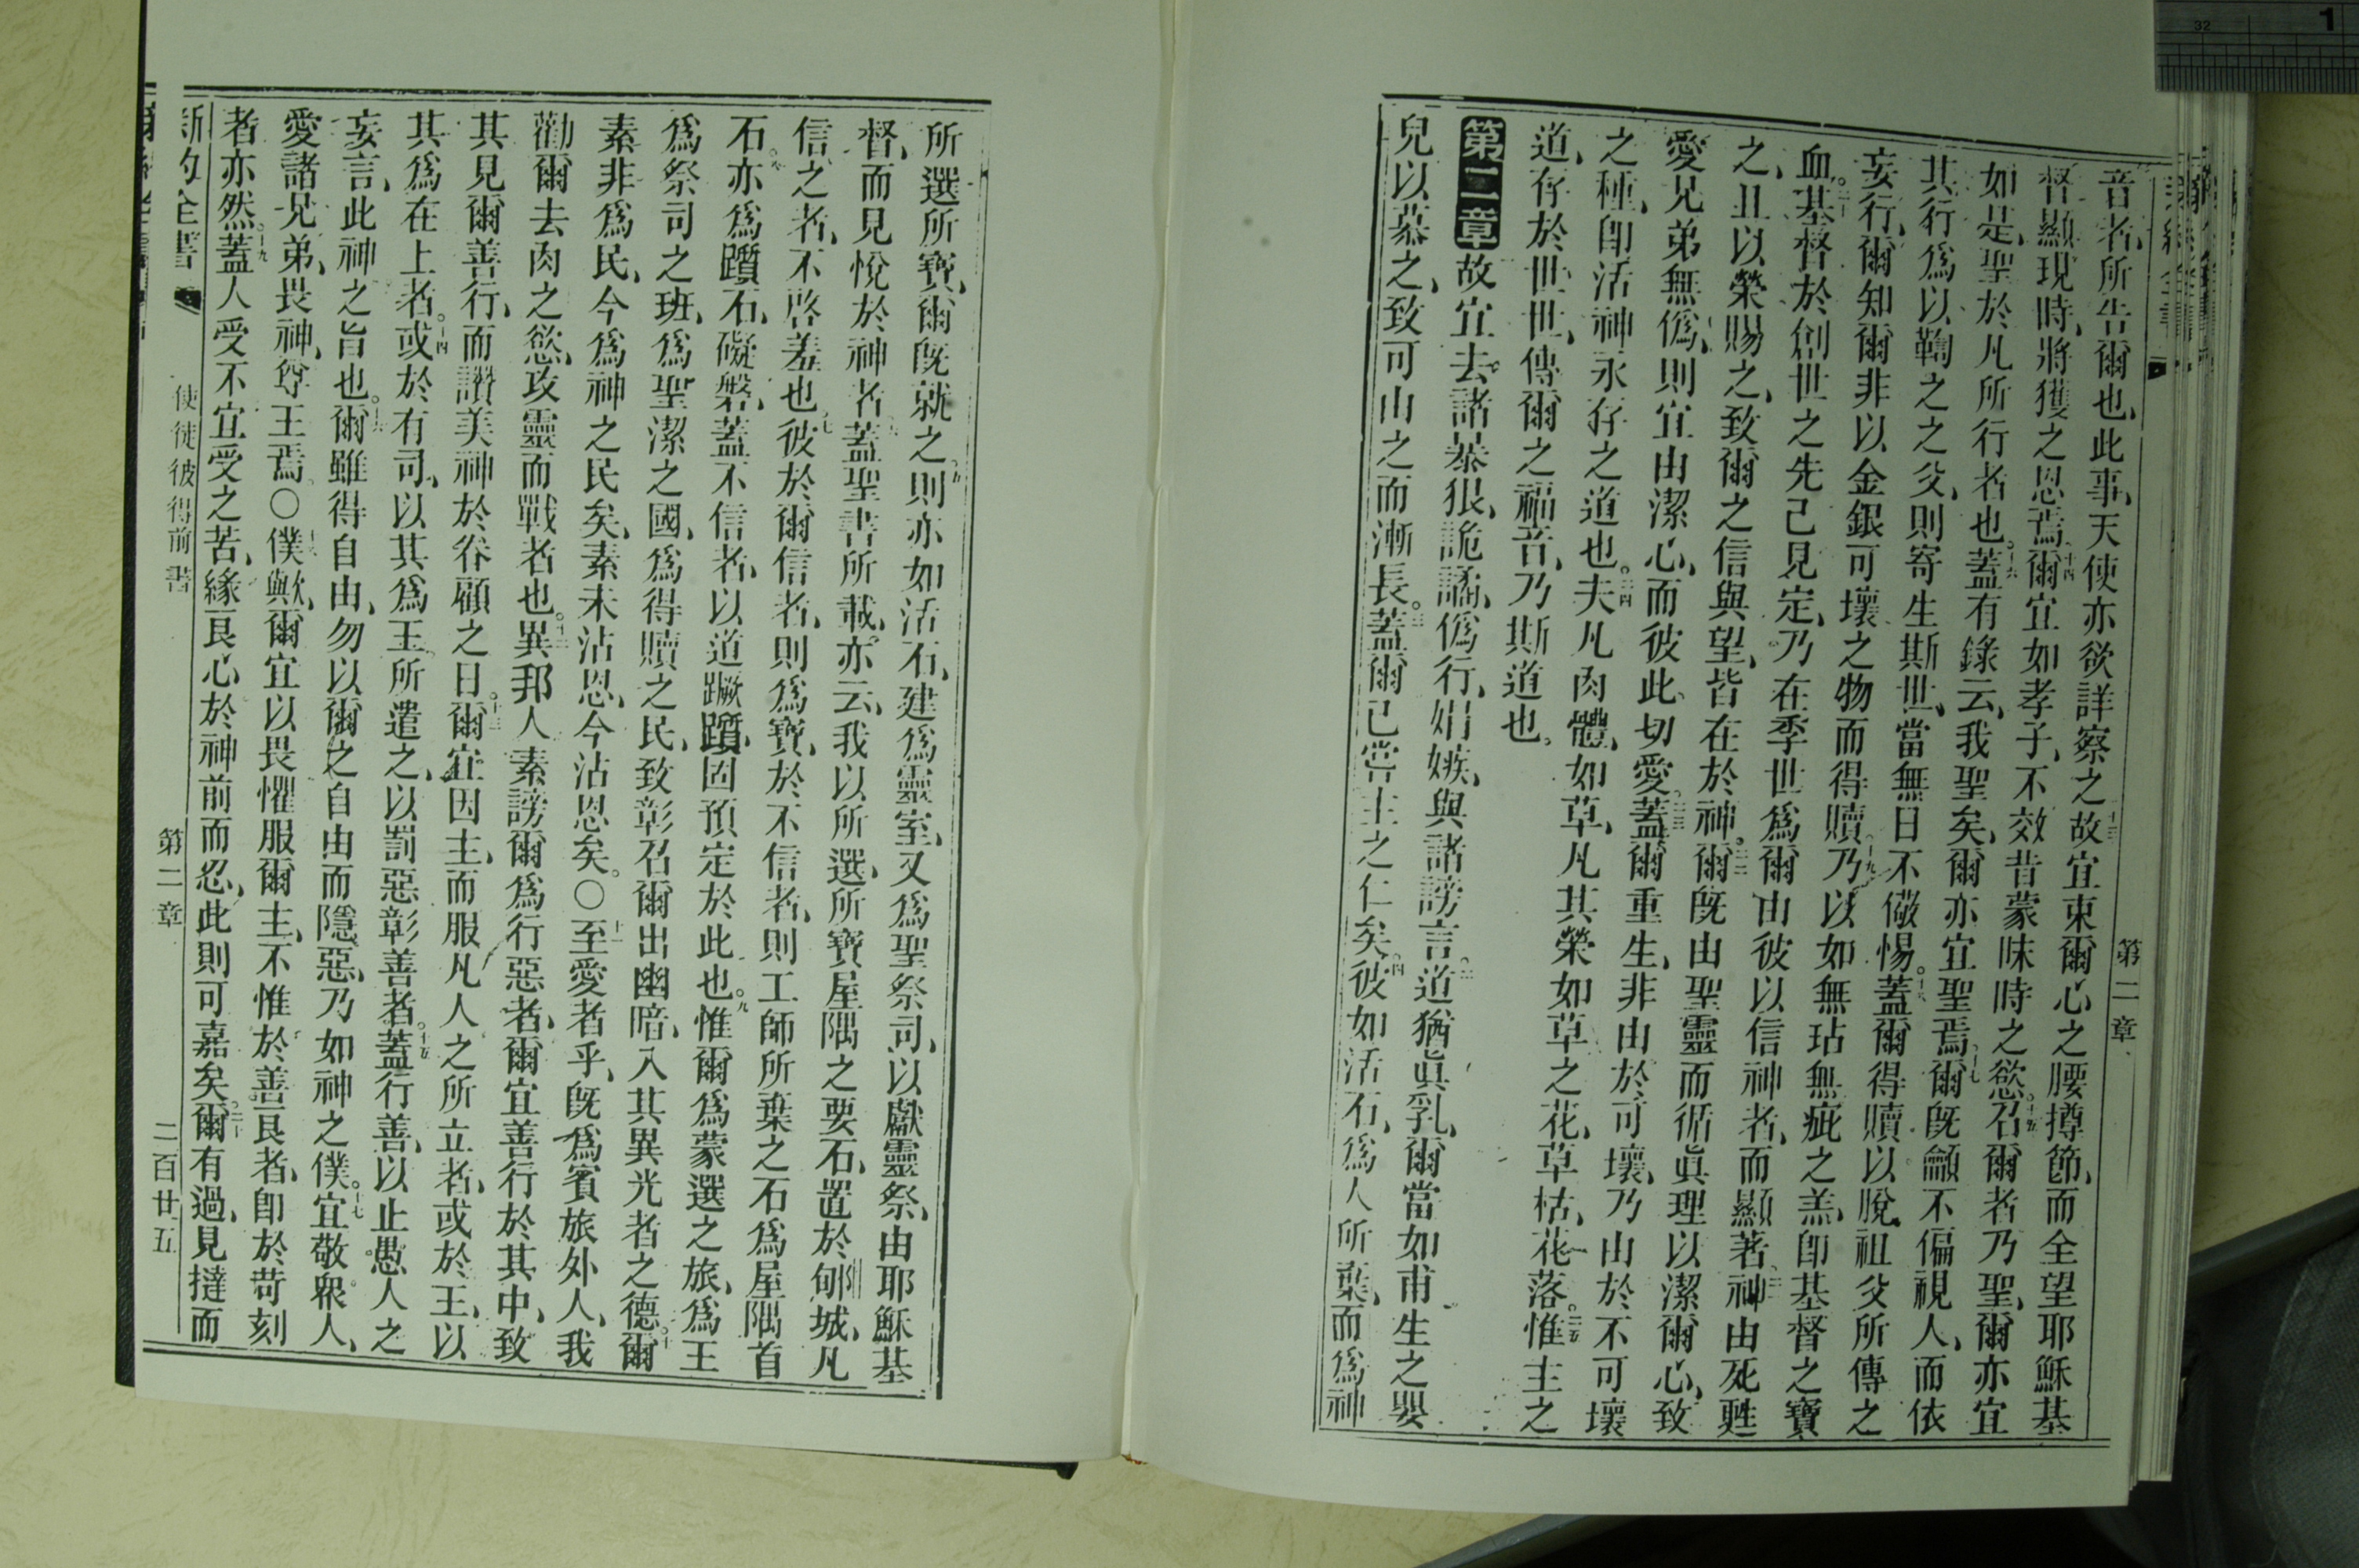 音者、所告爾也、此事、天使亦欲詳察之、十三故宜束爾心之腰撙節、而全望耶穌基
督顯現時、將獲之恩焉、十四爾宜如孝子、不效昔蒙昧時之慾。十五召爾者乃聖、爾亦宜
如是、聖於凡所行者也。十六蓋有錄云、我聖矣、爾亦宜聖焉、十七爾旣籲不偏視人、而依
其行爲以鞫之之父、則寄生斯世、當無日不儆惕。十八蓋爾得贖以脫祖父所傳之
妄行、爾知爾非以金銀可壞之物而得贖、十九乃以如無玷無疵之羔、卽基督之寶
血。二十基督於創世之先己見定、乃在季世爲爾由彼以信神者、而顯著二一神由死甦
之、且以榮賜之、致爾之信與望、皆在於神。二二爾旣由聖靈而循眞理以潔爾心、致
愛兄弟無僞、則宜由潔心、而彼此切愛。二三蓋爾重生、非由於可壞、乃由於不可壞
之種、卽活神永存之道也。二四夫凡肉體、如草、凡其榮如草之花、草枯、花落。二五惟主之
道、存於世世、傳爾之福音、乃斯道也。
第二章故宜去諸暴狠、詭譎、僞行、娼嫉、與諸謗言。二道猶眞乳、爾當如甫生之嬰
兒以慕之、致可由之而漸長。三蓋爾已嘗主之仁矣。四彼如活石、爲人所棄、而爲神
第二章
所選所寶、爾旣就之、五則亦如活石、建爲靈室、又爲聖祭司、以獻靈祭、由耶穌基
督、而見悅於神者、六蓋聖書所載、亦云、我以所選、所寶屋隅之要石、置於郇城、凡
信之者、不啓羞也、七彼於爾信者、則爲寶、於不信者、則工師所棄之石爲屋隅首
石。八亦爲躓石、礙磐、蓋不信者、以道蹶躓、固預定於此也。九惟爾爲蒙選之旅、爲王
爲祭司之班、爲聖潔之國、爲得贖之民、致彰召爾出幽暗、入其異光者之德。十爾
素非爲民、今爲神之民矣、素未沾恩、今沾恩矣。〇十一至愛者乎、旣爲賓旅外人、我
勸爾去肉之慾、攻靈而戰者也。十二異邦人素謗爾爲行惡者、爾宜善行於其中、致
其見爾善行、而讚美神於眷顧之日。十三爾宜因主、而服凡人之所立者、或於王、以
其爲在上者。十四或於有司、以其爲王所遣之、以罰惡彰善者。十五蓋行善、以止愚人之
妄言、此神之旨也。十六爾雖得自由、勿以爾之自由而隱惡、乃如神之僕。十七宜敬衆人、
愛諸兄弟、畏神、尊王焉。〇十八僕歟、爾宜以畏懼服爾主、不惟於善良者、卽於苛刻
者亦然。十九蓋人受不宜受之苦、緣良心於神前而忍、此則可嘉矣。二十爾有過、見撻而
新約全書 使徒彼得前書 第二章 二百廿五